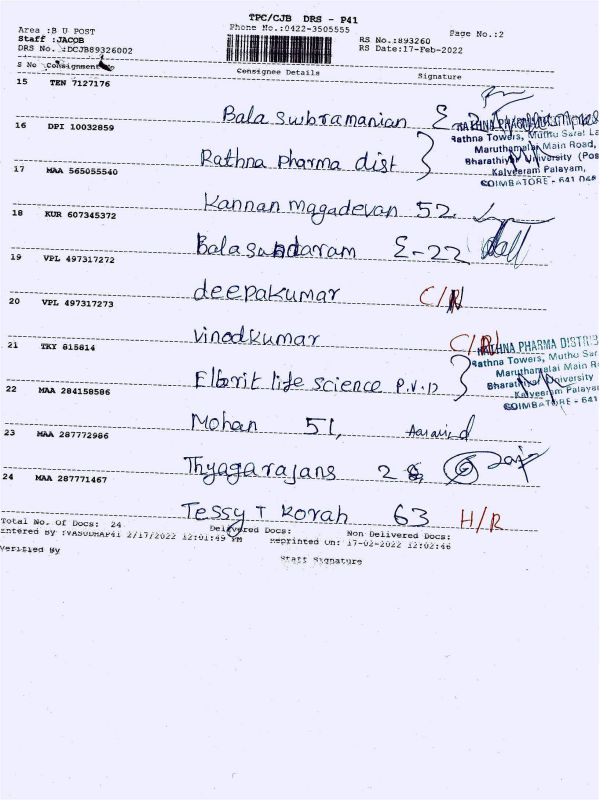 TPC/CJB DRS - P41
Area :B U POST Phone No.:0422-3505555 Page No.:2
Staff :JACOB RS No.:893260
DRS No. :DCJB89326002 RS Date:17-Feb-2022
S No Consignment No Consignee Details Signature
15 TEN 7127176
Bala Subramanian
16 DPI 10032859
Rathna Towers, Muthu Sarai La
Maruthamalai Main Road,
Rathna Pharma dist
Bharathiyar University (Pos
Kalveeram Palayam,
COIMBATORE - 641 046
17 MAA 565055540
Kannan magadevan 52
18 KUR 607345372
Balasundaram E-22
19 VPL 497317272
deepakumar C/R
20 VPL 497317273
vinodkumar C/R
21 TKY 815814
RATHNA PHARMA DISTRIB
Rathna Towers, Muthu Sar
Maruthamalai Main R
Elbrit life science P.V.D
Bharathiyar University
Kalveeram Palaya
COIMBATORE - 641
22 MAA 284158586
Mohan 51, Aaravind
23 MAA 287772986
Thyagarajans
24 MAA 287771467
Tessy T Korah 63 H/R
Total No. Of Docs: 24 Delivered Docs: Non Delivered Docs:
Entered By :VASUDHAP41 2/17/2022 12:01:49 PM Reprinted On: 17-02-2022 12:02:46
Verified By Staff Signature